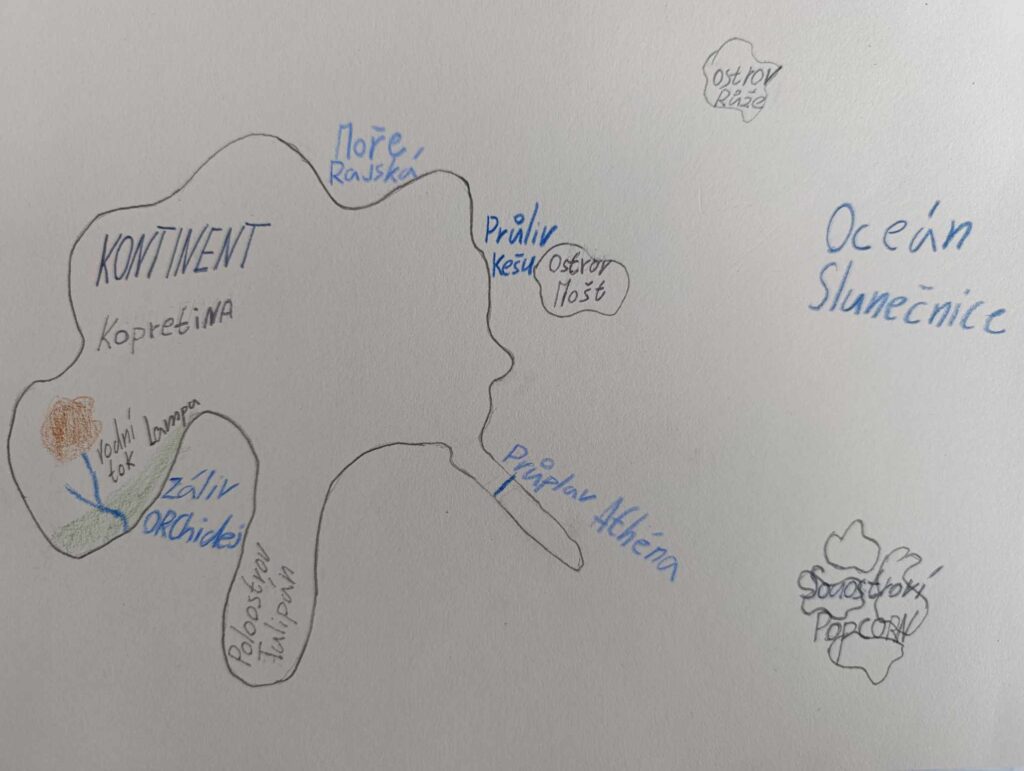 Ostrov
Růže
Moře
Rajská
KONTINENT
KopretiNA
Průliv
Kešu
Ostrov
Mošt
Oceán
Slunečnice
vodní
tok
Lampa
Záliv
ORChidej
Průplav Athéna
Poloostrov
Tulipán
Souostroví
POPCORN